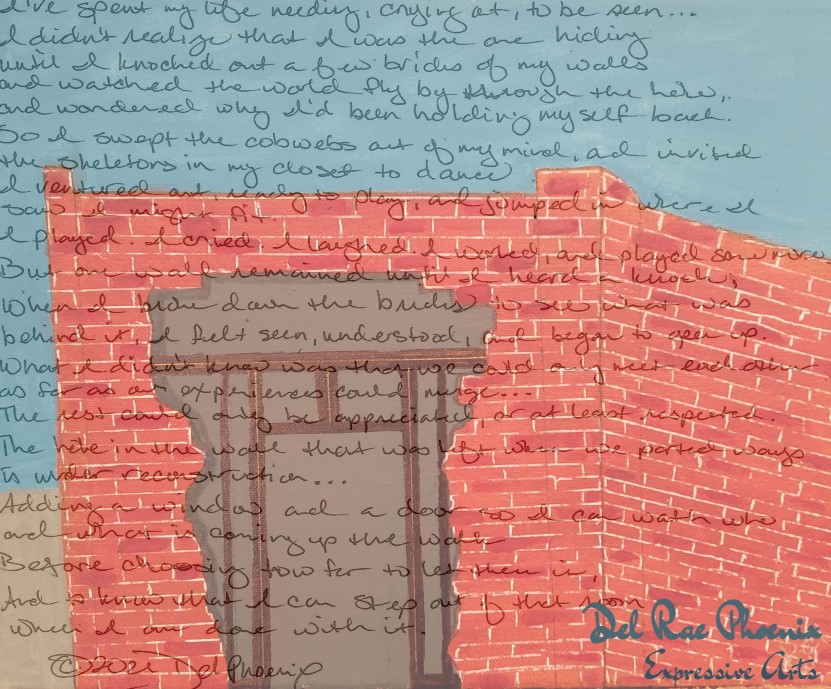 I've spent my life needing, crying out, to be seen...
I didn't realize that I was the one hiding
until I knocked out a few bricks of my walls
and watched the world fly by through the hole,
and wondered why I'd been holding myself back.
So I swept the cobwebs out of my mind, and invited
the skeletons in my closet to dance
I ventured out, ready to play, and jumped in where I
saw I might fit.
I played. I cried. I laughed. I worked, and played some more
But one wall remained until I heard a knock;
When I broke down the bricks to see what was
behind it, I felt seen, understood, and began to open up.
What I didn't know was that we could only meet each other
as far as our experiences could merge...
The rest could only be appreciated, or at least respected.
The hole in the wall that was left when we parted ways
is under reconstruction...
Adding a window and a door so I can watch who
and what is coming up the walk
Before choosing how far to let them in,
And to know that I can step out of that room
when I am done with it.
©2021 Del Phoenix
Del Rae Phoenix
Expressive Arts